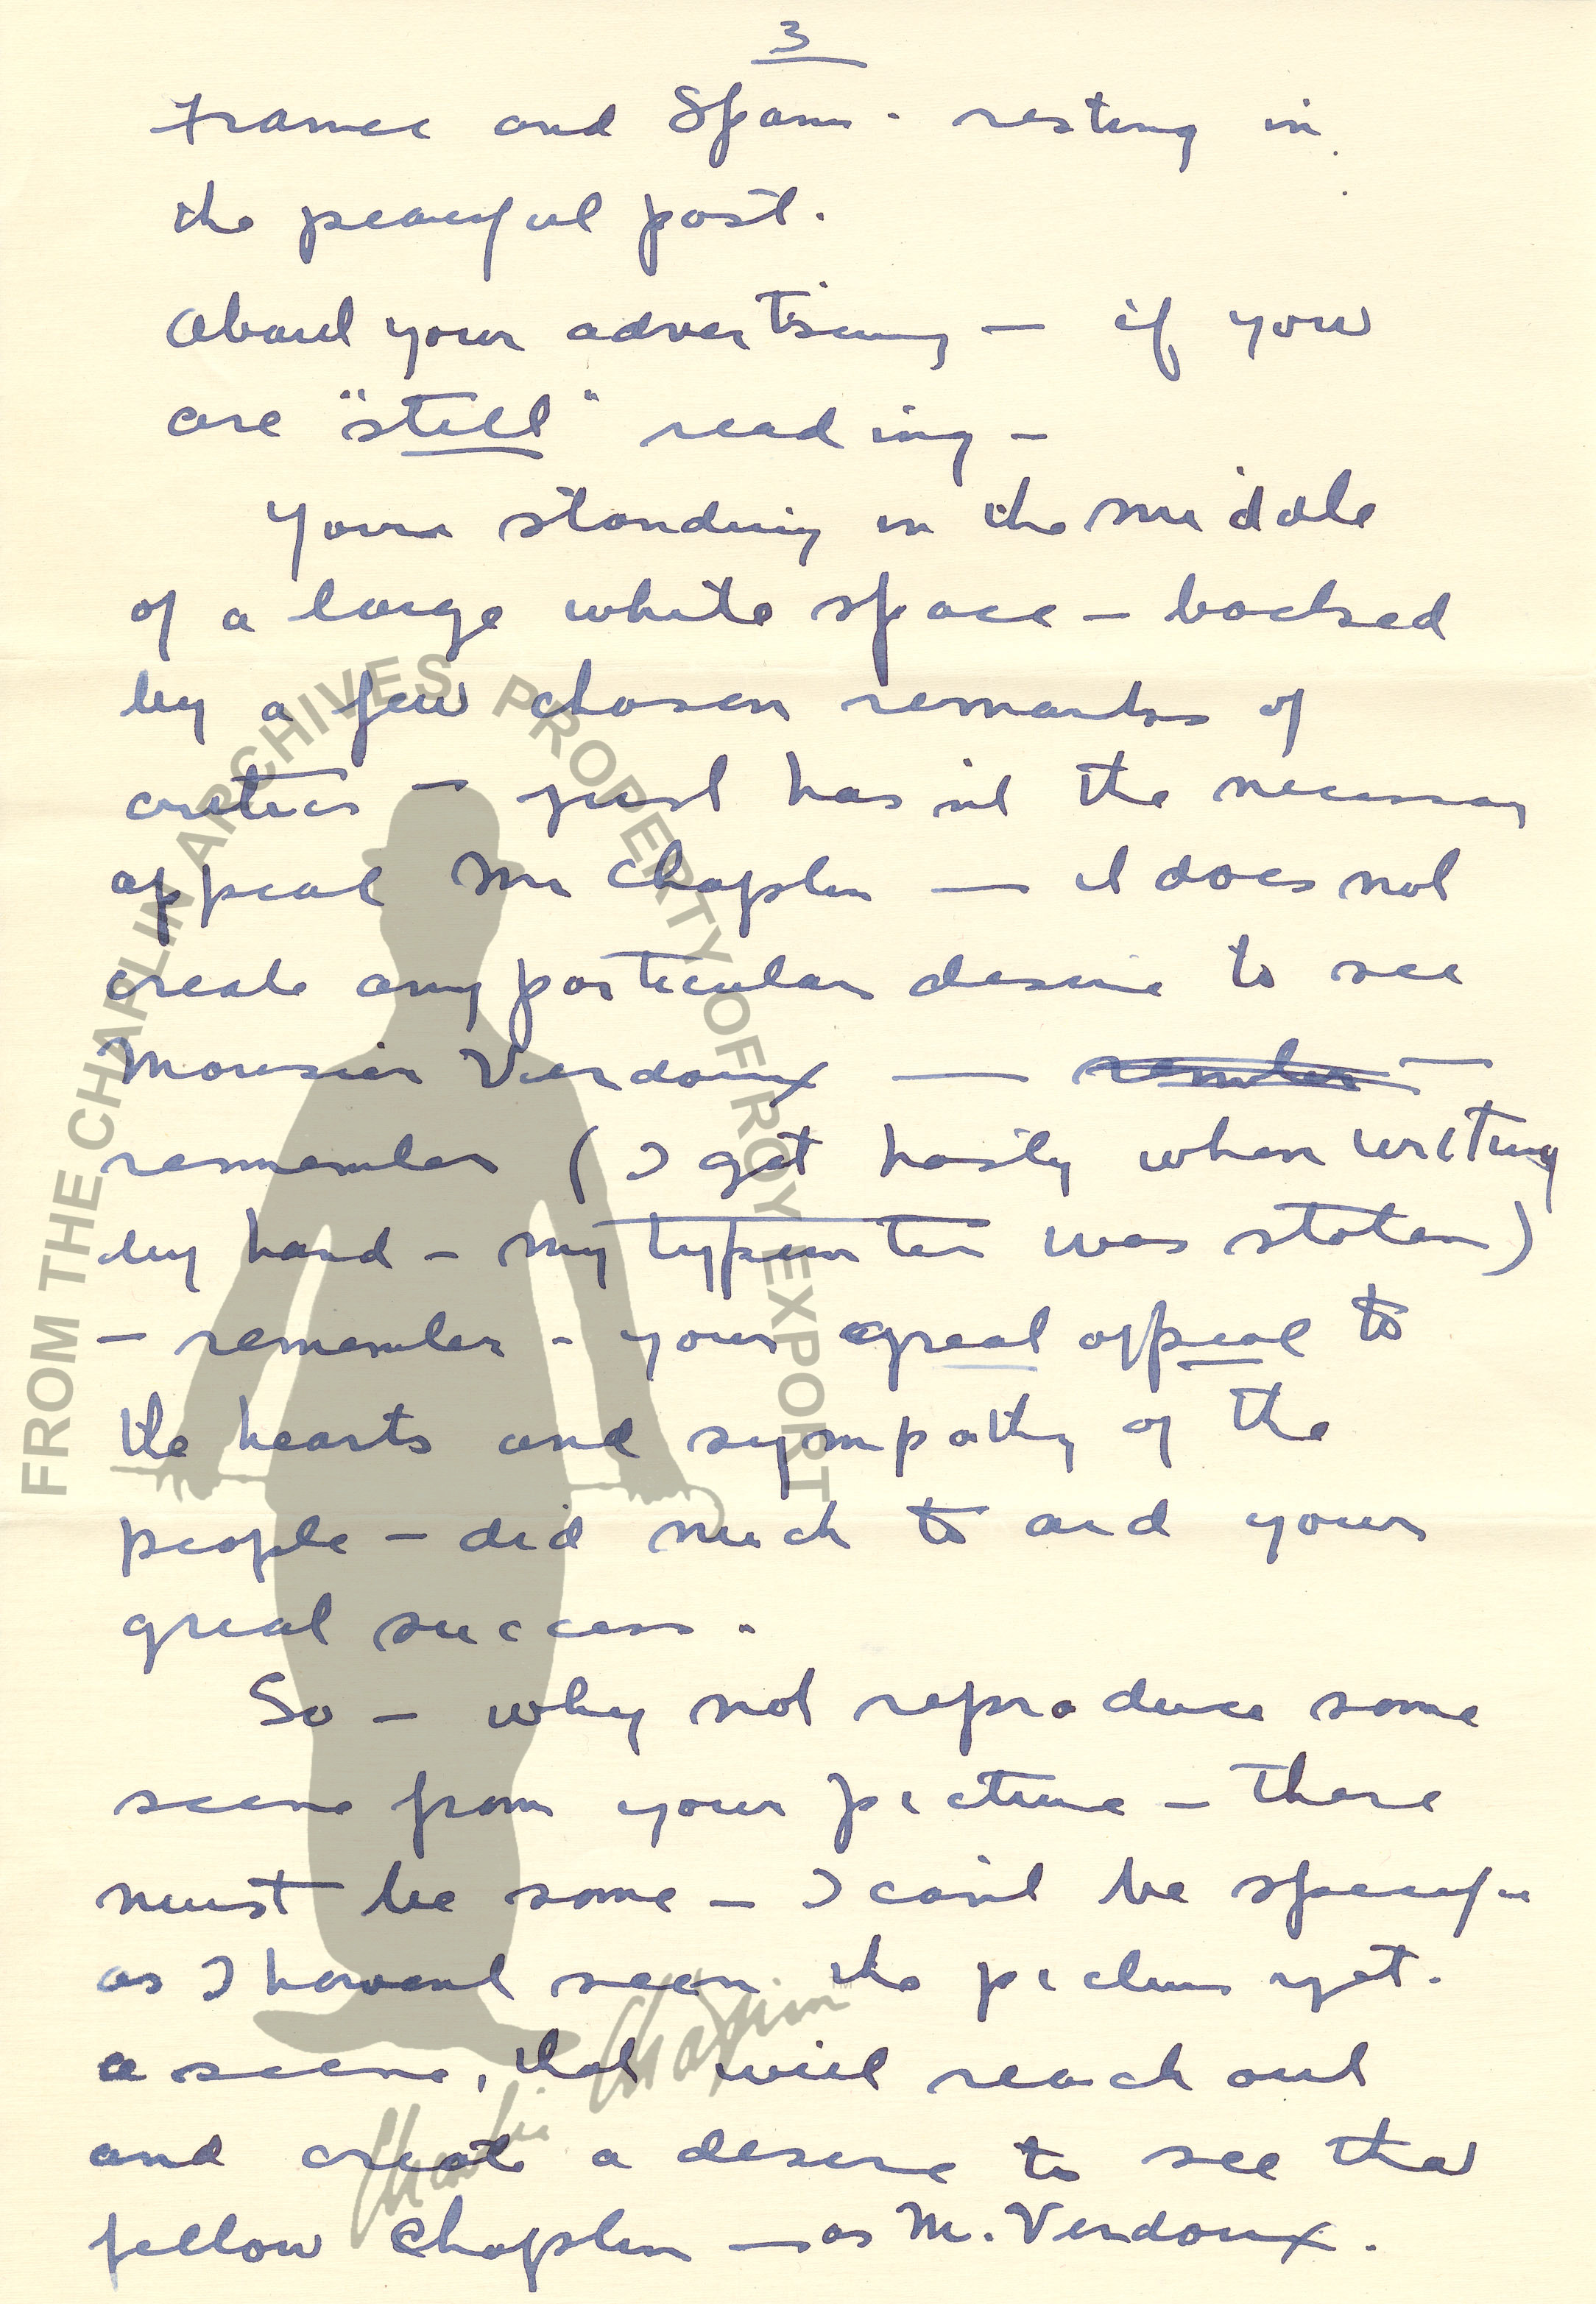 3
France and Spain - resting in
the peaceful past.
About your advertising — if you
are "still" reading —
Your standing in the middle
of a large white space — backed
by a few chosen remarks of
critics — just has'nt the necessary
appeal Mr Chaplin — it does not
create any particular desire to see
Monsieur Verdoux —
remember ( I get hasty when writing
by hand — my typewriter was stolen )
— remember - your great appeal to
the hearts and sympathy of the
people — did much to aid your
great success.
So — why not reproduce some
scene from your picture — there
must be some — I can't be specific
as I havent seen the picture yet.
a scene, that will reach out
and create a desire to see that
fellow Chaplin — as M. Verdoux.
FROM THE CHAPLIN ARCHIVES PROPERTY OF ROY EXPORT
Charlie Chaplin